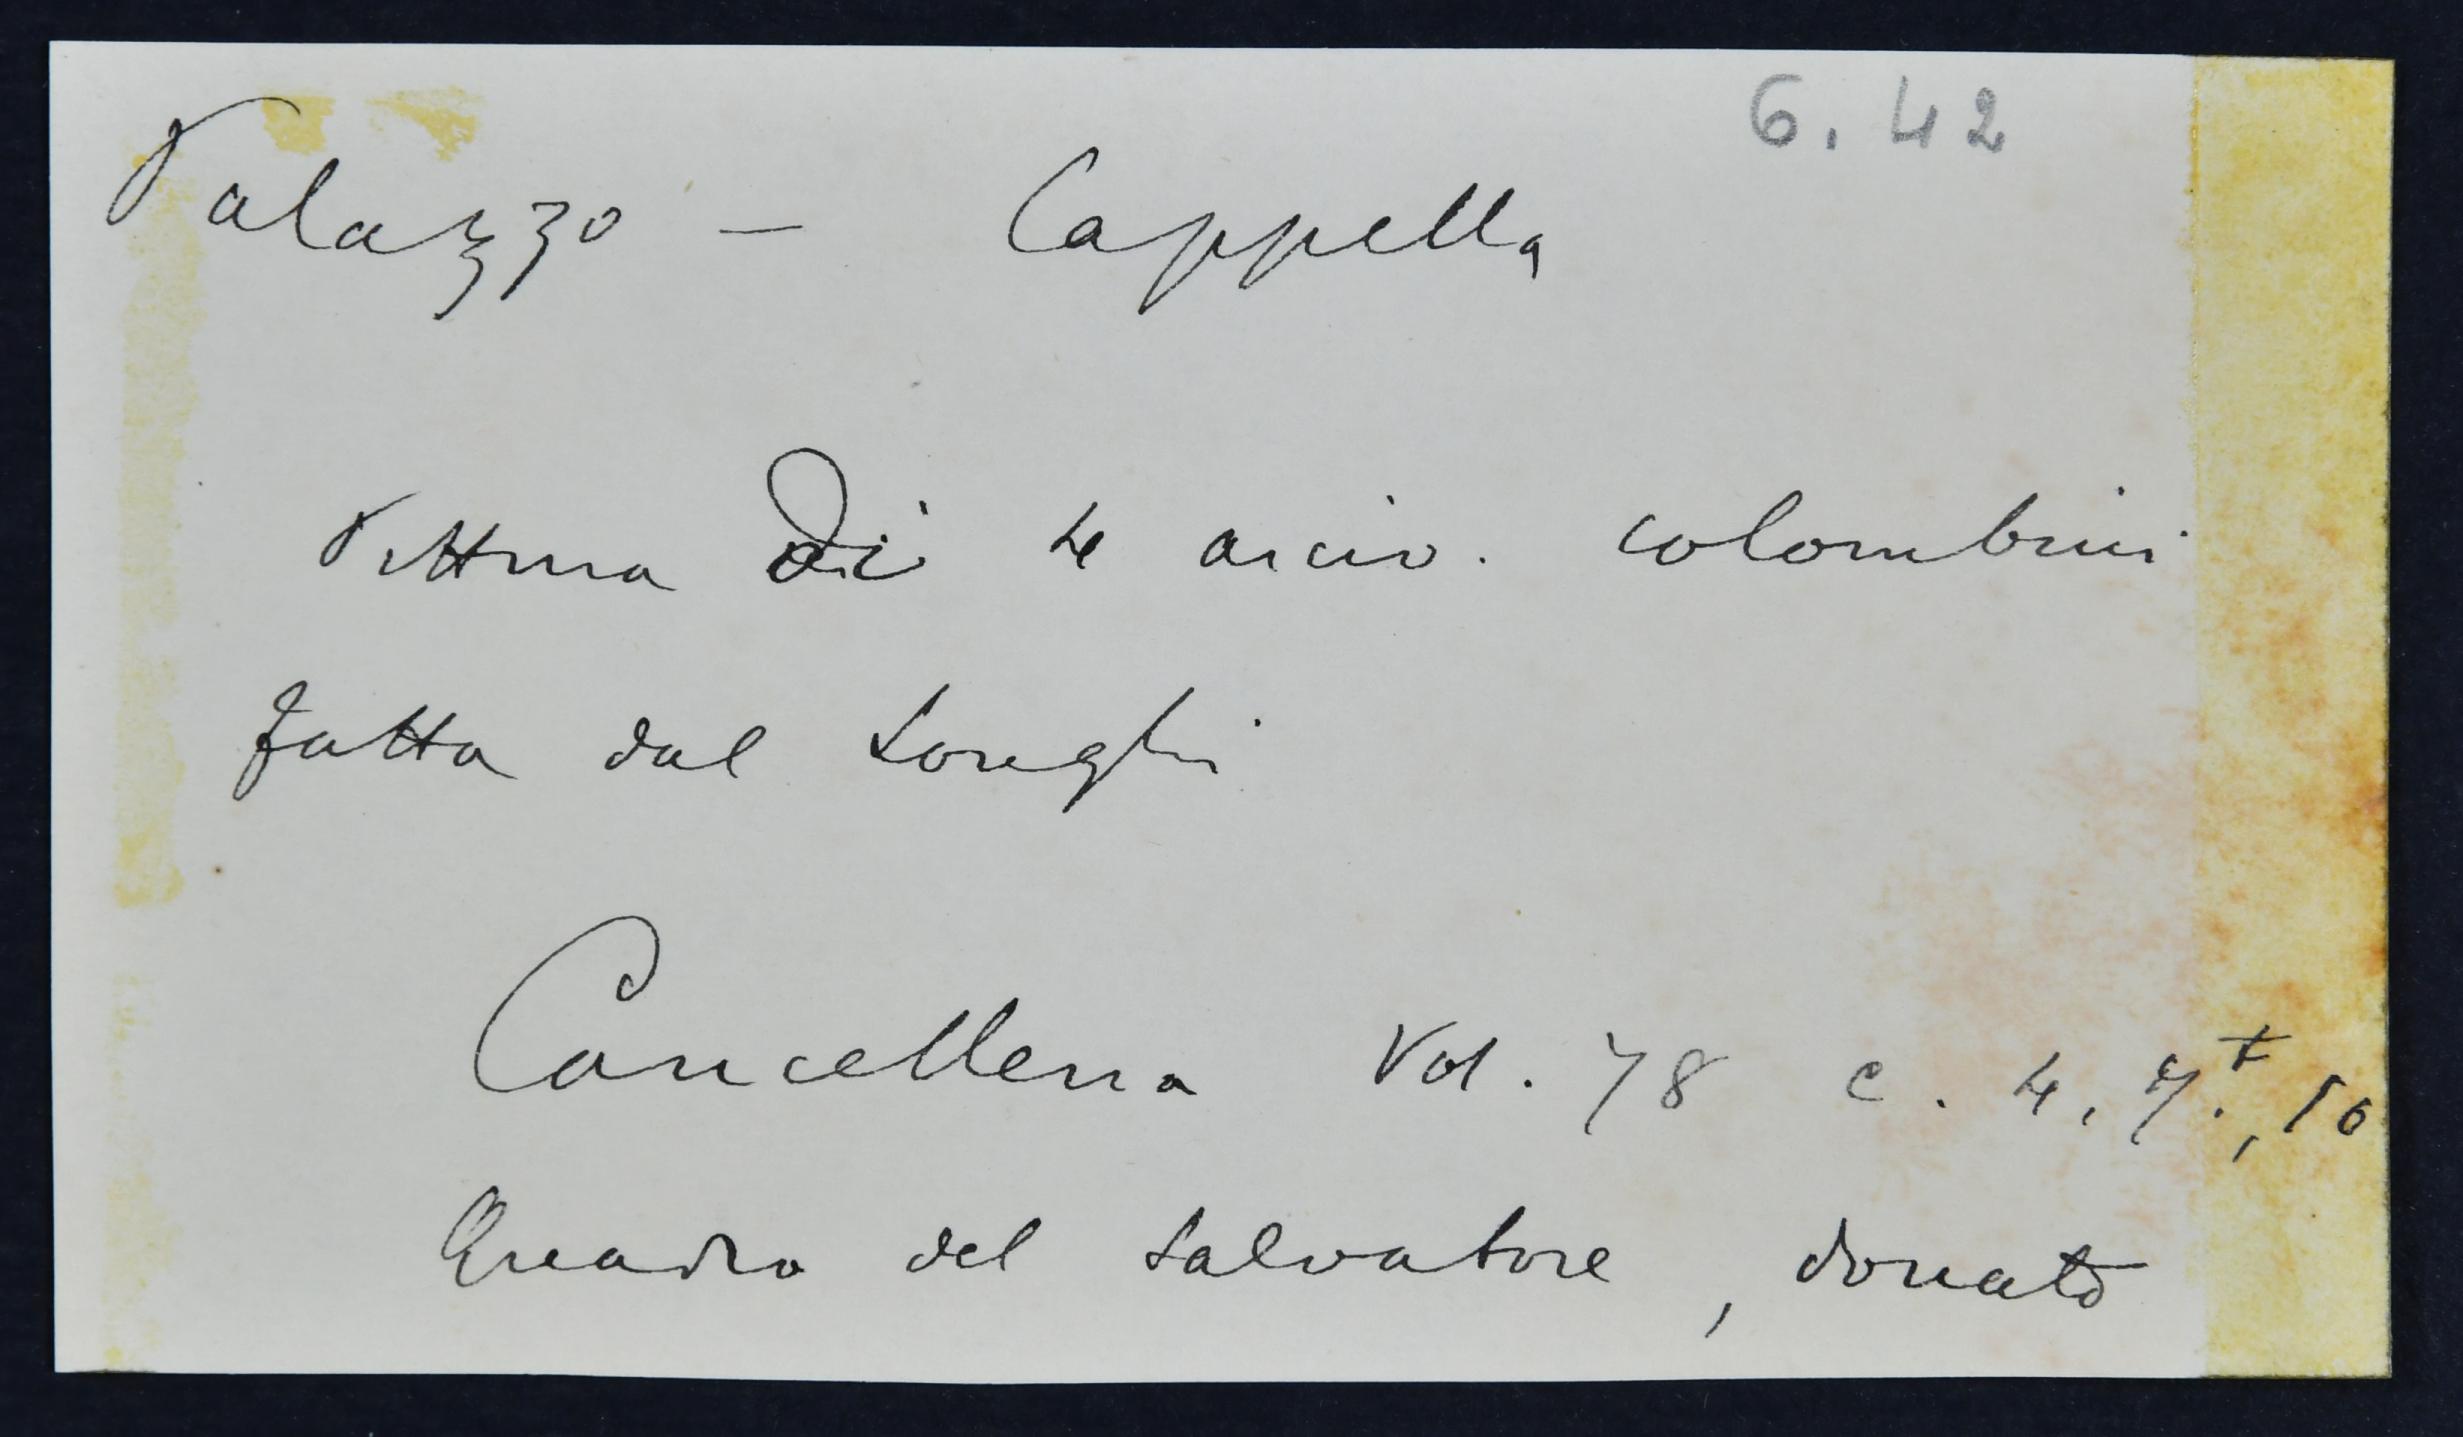 6.42
Palazzo – Cappella
Pittura di 4 arciv. colombini
fatta dal Longhi
Cancelleria Vol. 78 c. 4, 7.t, 10
Quadro del Salvatore, donato